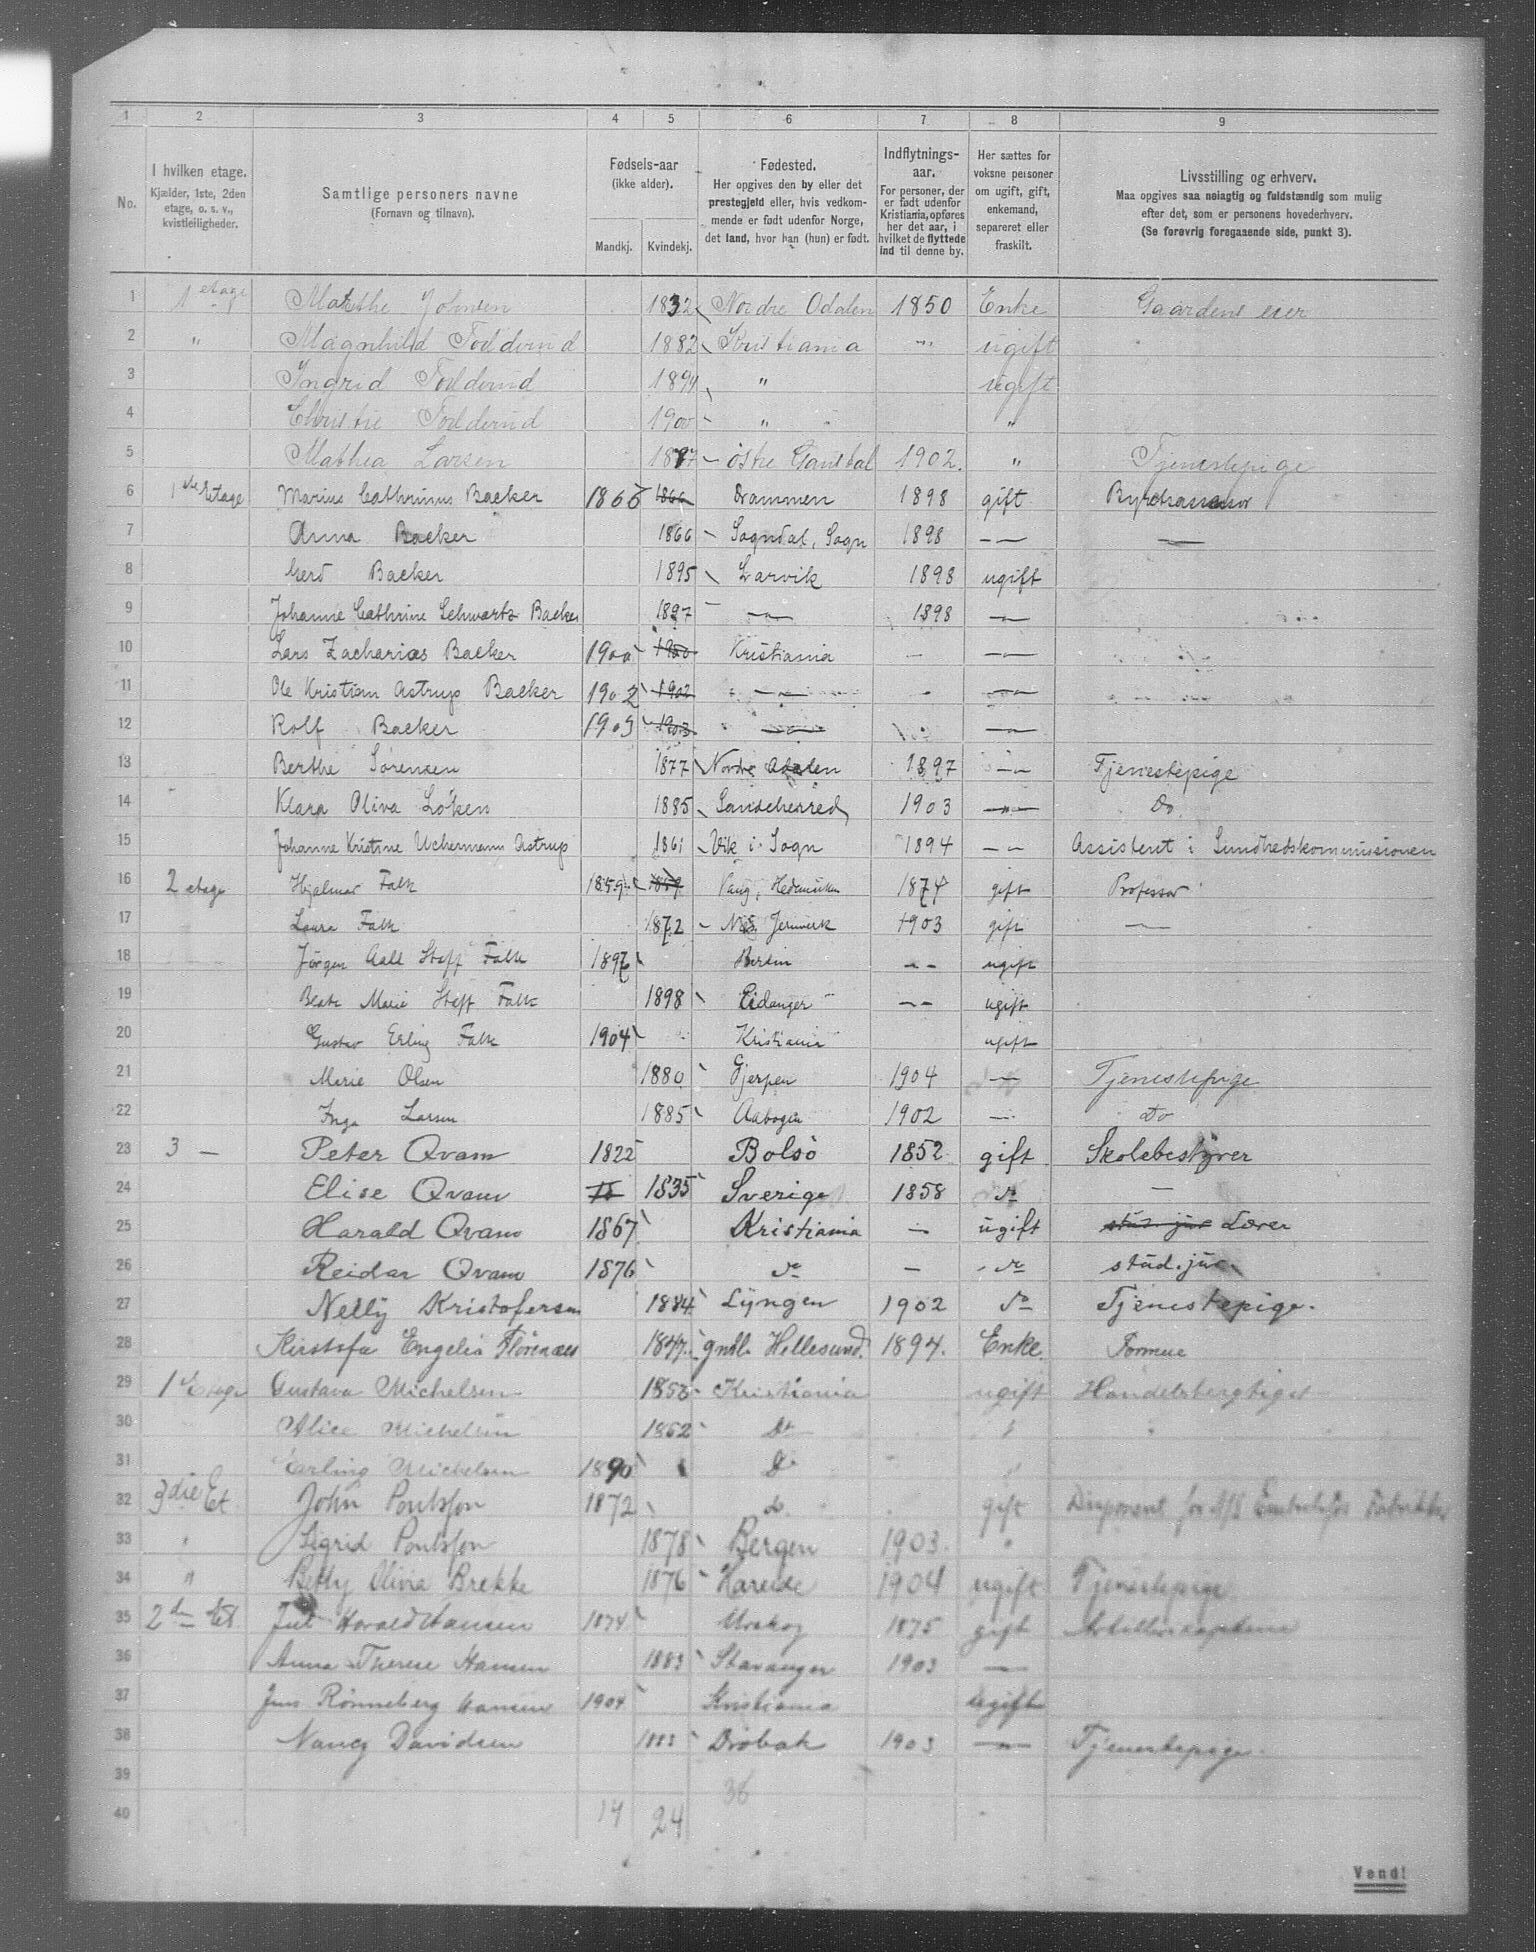 1 2 3 4 5 6 7 8 9
No.
I hvilken etage.
Kjælder, 1ste, 2den
etage, o. s. v.,
kvistleiligheder.
Samtlige personers navne
(Fornavn og tilnavn).
Fødsels-aar
(ikke alder).
Mandkj. Kvindekj.
Fødested.
Her opgives den by eller det
prestegjeld eller, hvis vedkom-
mende er født udenfor Norge,
det land, hvor han (hun) er født.
Indflytnings-
aar.
For personer, der
er født udenfor
Kristiania, opføres
her det aar, i
hvilket de flyttede
ind til denne by.
Her sættes for
voksne personer
om ugift, gift,
enkemand,
separeret eller
fraskilt.
Livsstilling og erhverv.
Maa opgives saa nøiagtig og fuldstændig som mulig
efter det, som er personens hovederhverv.
(Se forøvrig foregaaende side, punkt 3).
1 1 etage Marthe Johnsen 1832 Nordre Odalen 1850 Enke Gaardens eier
2 " Magnhild 1882 Kristiania " ugift
3 Ingrid 1894 " ugift
4 Christie 1900 " "
5 Mathea Larsen 1877 østre 1902. " Tjenestepige
6 1ste Etage Marius Cathrinus Backer 1866 1866 Drammen 1898 gift Byretsassessor
7 Anna Backer 1866 Sogndal, Sogn 1898 — —
8 Gerd Backer 1895 Larvik 1898 ugift
9 Johanne Cathrine Schwartz Backer 1897 — 1898 —
10 Lars Zacharias Backer 1900 1900 Kristiania — —
11 Ole Kristian Astrup Backer 1902 1902 — —
12 Rolf Backer 1903 1903 — —
13 Berthe Sørensen 1877 Nordre Odalen 1897 — Tjenestepige
14 Klara Oliva Løken 1885 Sandeherred 1903 — Do
15 Johanne Kristine Uchermann Astrup 1861 Vik i Sogn 1894 — Assistent i Sundhedskommissionen
16 2 etage Hjalmar Falk 1859 1859 Vang, Hedemarken 1874 gift Professor
17 Laura Falk 1872 Næs Jernverk 1903 gift —
18 Jørgen Aall Falk 1896 Berlin — ugift
19 Beate Marie Falk 1898 Eidanger — ugift
20 Gustav Erling Falk 1904 Kristiania ugift
21 Marie Olsen 1880 Gjerpen 1904 — Tjenestepige
22 Inga Larsen 1885 Aabogen 1902 — Do
23 3 — Peter Qvam 1822 Bolsø 1852 gift Skolebestyrer
24 Elise Qvam 18 1835 Sverige 1858 do —
25 Harald Qvam 1867 Kristiania — ugift stud. jur Lærer
26 Reidar Qvam 1876 do — do stud. jur.
27 Nelly Kristofersen 1884 Lyngen 1902 do Tjenestepige.
28 Engelia 1847 Hellesund. 1894. Enke. Formue
29 1ste Etage Gustava Michelsen 1858 Kristiania ugift Handelsberettiget
30 Alice Michelsen 1862 Do "
31 Erling Michelsen 1890 Do "
32 3die Et John Poulsson 1872 do gift Disponent for A/S Fabrikker
33 " Sigrid Poulsson 1878 Bergen 1903. "
34 " Betty Olivia Brekke 1876 Hareide 1904 ugift Tjenestepige
35 2den Et. Juel Harald Hansen 1874 Urskog 1875 gift
36 Anna Therese Hansen 1883 Stavanger 1903 —
37 Jens Rønneberg Hansen 1904 Kristiania ugift
38 Nancy Davidsen 1883 Drøbak 1903 — Tjenestepige.
39 38
40 14 24
Vend!